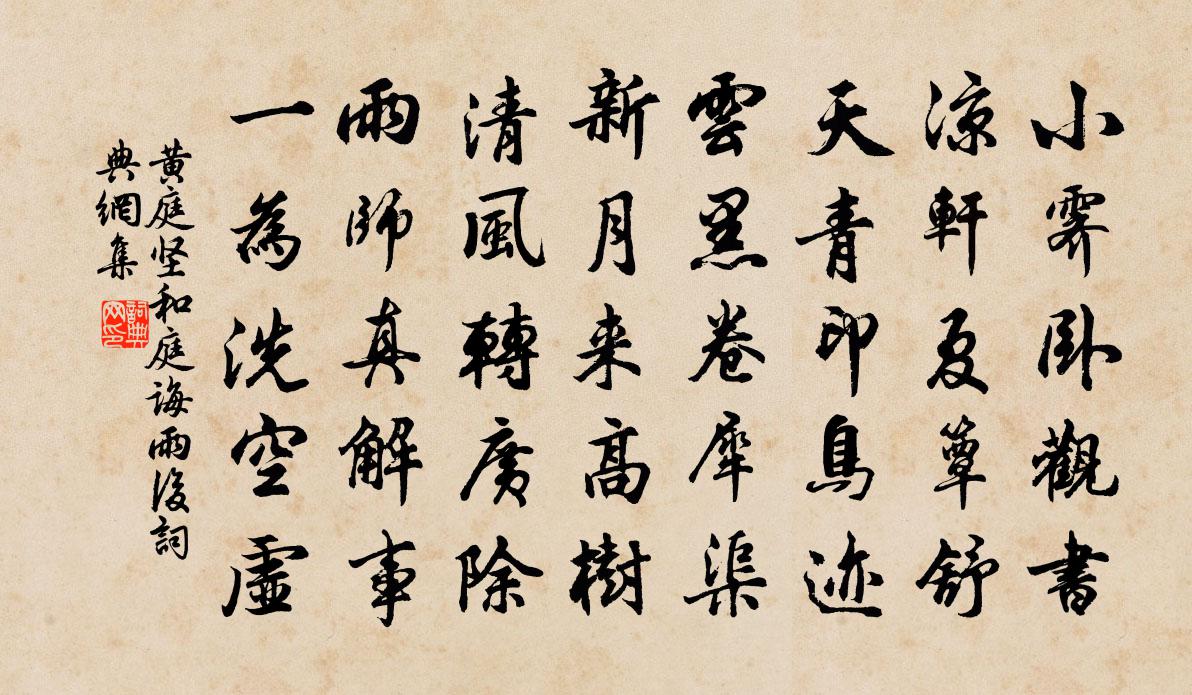 小霽卧觀書
涼軒夏簟舒
天青印鳥迹
雲黑卷犀渠
新月来高樹
清風轉廣除
雨師真解事
一為洗空虛
黄庭坚和庭誨雨後詞
典網集
詞典
网印